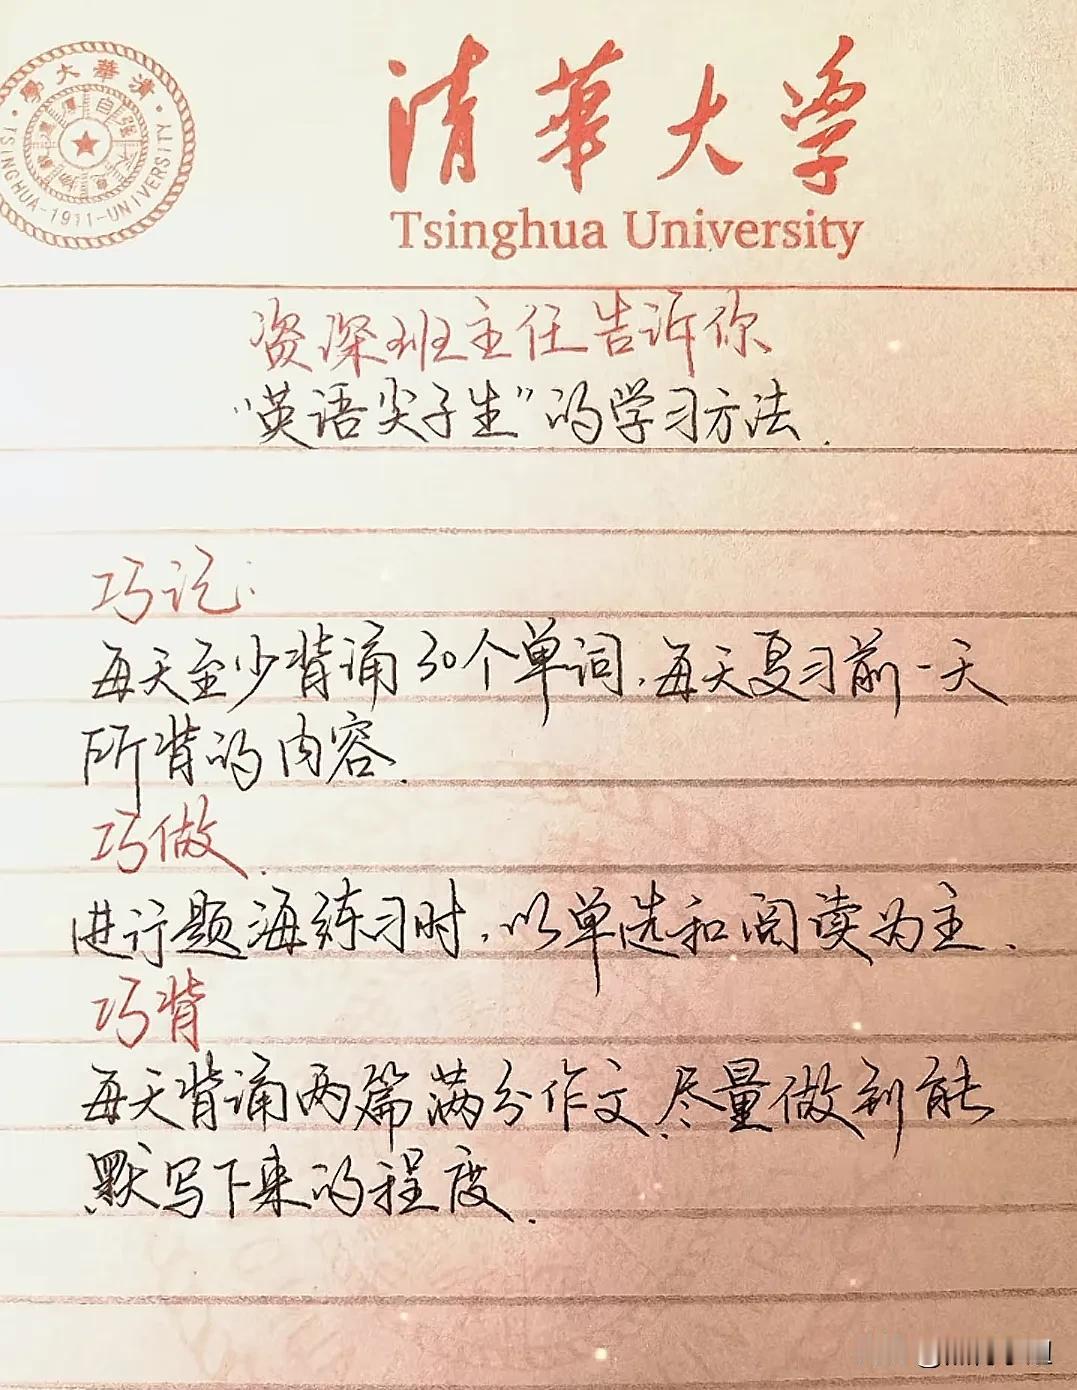 清華大学
Tsinghua University
清華大學
自强不息
TSINGHUA-1911-UNIVERSITY
资深班主任告诉你
“英语尖子生”的学习方法.
巧记:
每天至少背诵30个单词,每天复习前一天
所背的内容.
巧做.
进行题海练习时,以单选和阅读为主.
巧背
每天背诵两篇满分作文,尽量做到能
默写下来的程度.